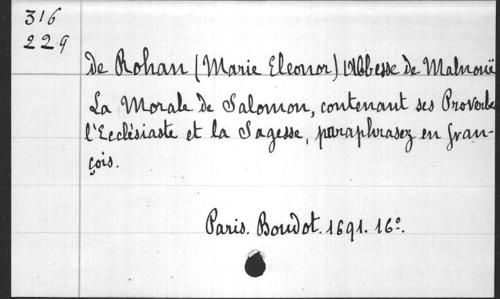 316
229
de Rohan (Marie Eleonor) Abbesse de Malnouë
La Morale de Salomon, contenant ses Proverbe
l'Ecclésiaste et la Sagesse, paraphrasez en fran-
çois.
Paris. Boudot. 1691. 16º.